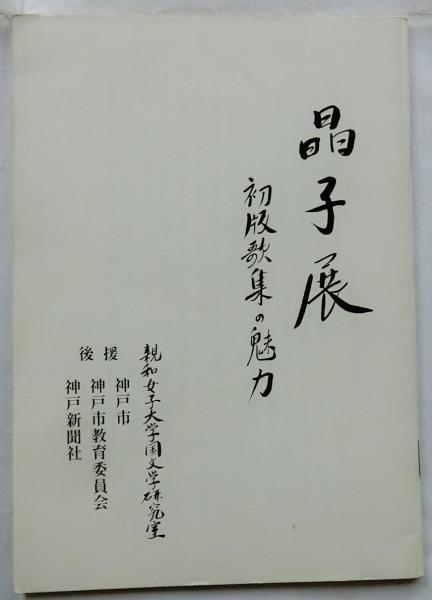 晶子展
初版歌集の魅力
親和女子大学国文学研究室
後援
神戸市
神戸市教育委員会
神戸新聞社